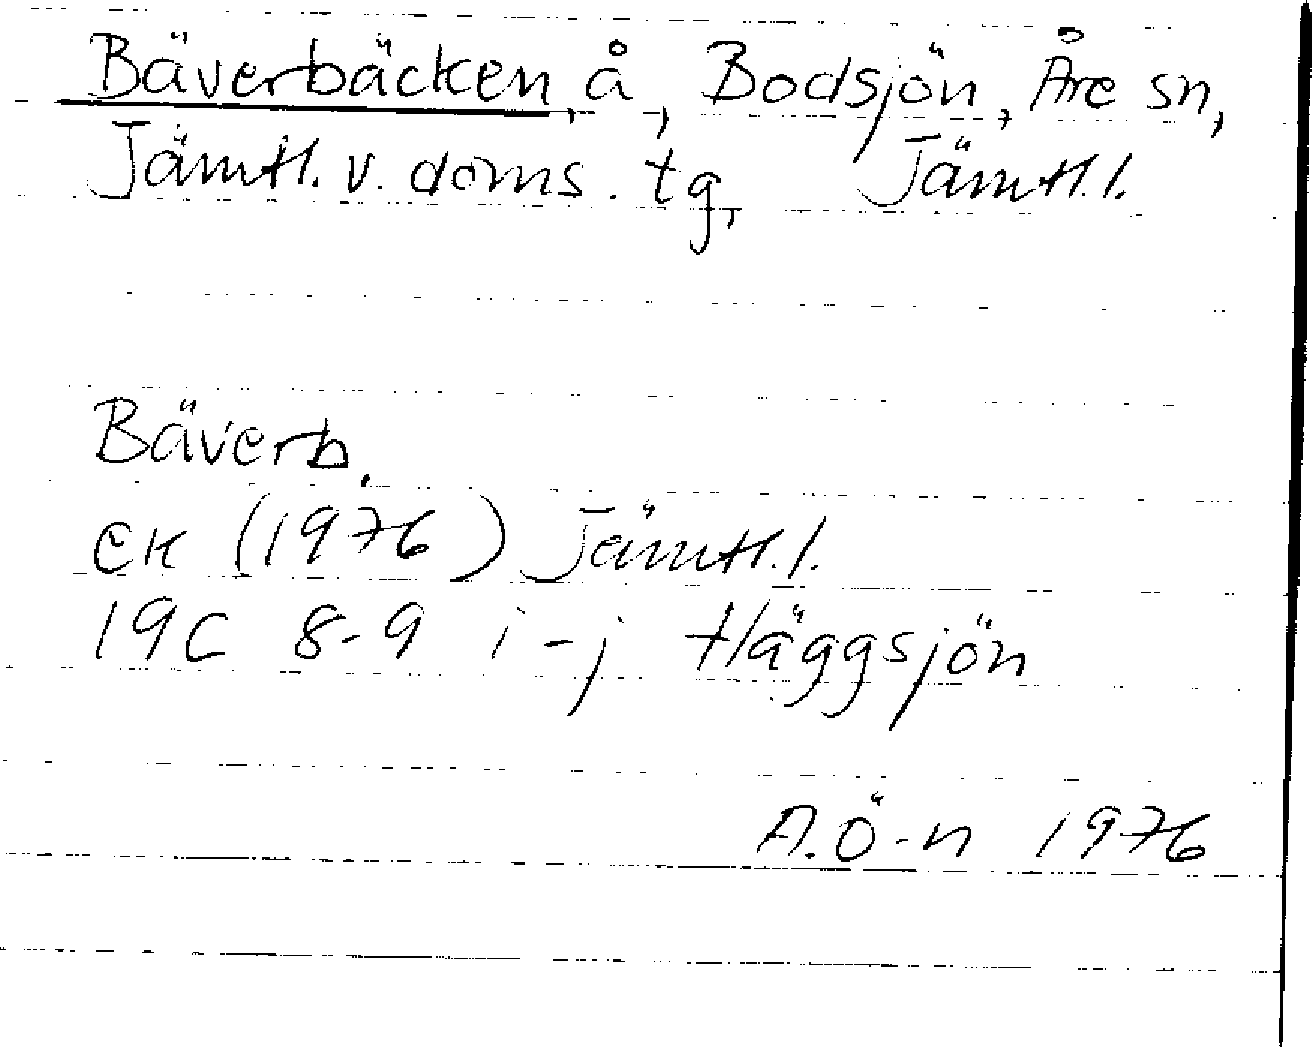 Bäverbäcken, å, Bodsjön, Åre sn,
Jämtl. v. doms. tg, Jämtl. l.
Bäverb.
EK (1976) Jämtl. l.
19C 8-9 i-j Häggsjön
A.Ö-n 1976